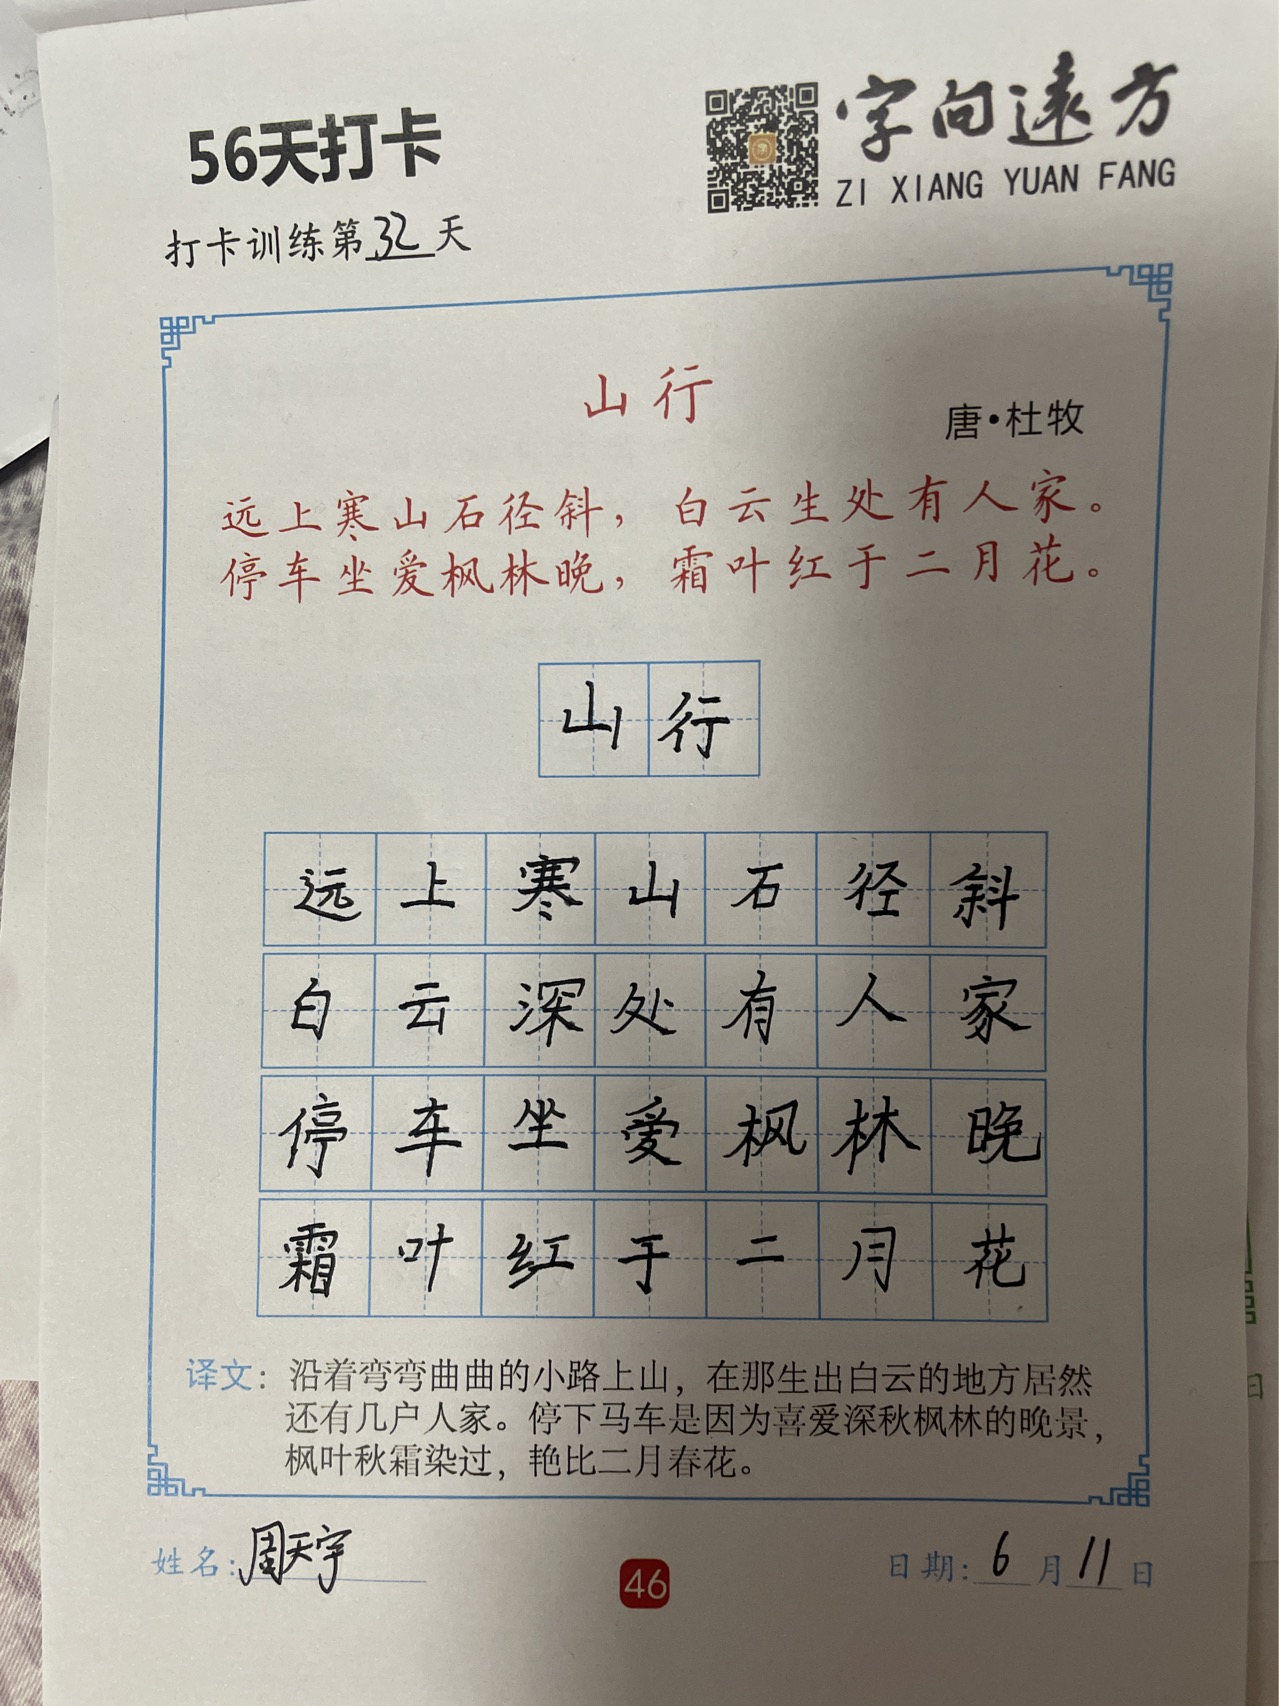 56天打卡
字向遠方
ZI XIANG YUAN FANG
打卡训练第32天
山行
唐·杜牧
远上寒山石径斜，白云生处有人家。
停车坐爱枫林晚，霜叶红于二月花。
山行
远上寒山石径斜
白云深处有人家
停车坐爱枫林晚
霜叶红于二月花
译文：沿着弯弯曲曲的小路上山，在那生出白云的地方居然
还有几户人家。停下马车是因为喜爱深秋枫林的晚景，
枫叶秋霜染过，艳比二月春花。
姓名：周天宇
46
日期：6月11日
日